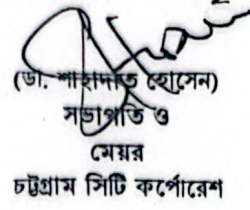 (ডা. শাহাদাত হোসেন)
সভাপতি ও
মেয়র
চট্টগ্রাম সিটি কর্পোরেশ